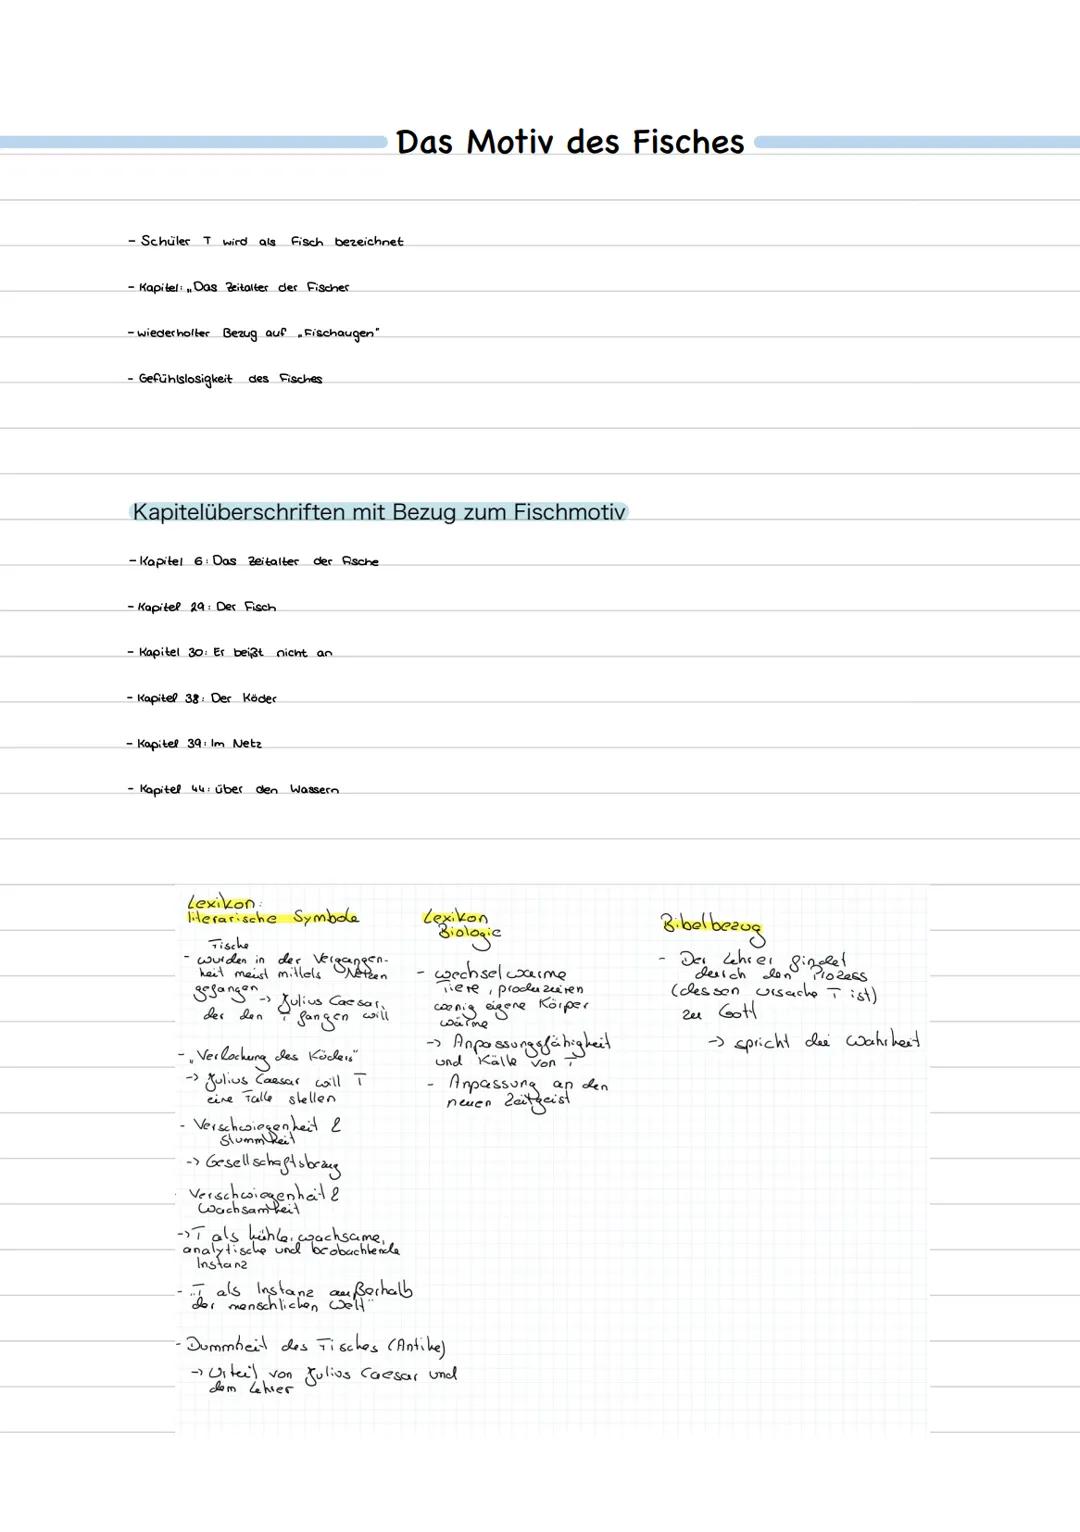 Das Motiv des Fisches
- Schüler T wird als Fisch bezeichnet
- Kapitel: „Das Zeitalter der Fischer
- wiederholter Bezug auf „Fischaugen"
- Gefühlslosigkeit des Fisches
Kapitelüberschriften mit Bezug zum Fischmotiv
- Kapitel 6: Das Zeitalter der Fische
- Kapitel 29: Der Fisch
- Kapitel 30: Er beißt nicht an
- Kapitel 38: Der Köder
- Kapitel 39: Im Netz
- Kapitel 44: über den Wassern
Lexikon:
literarische Symbole
Fische
- wurden in der Vergangen-
heit meist mittels Netzen
gefangen -> Julius Caesar,
der den T fangen will
- „Verlockung des Köders"
-> Julius Caesar will T
eine Falle stellen
- Verschwiegenheit &
Stummheit
-> Gesellschaftsbezug
Verschwiegenheit &
Wachsamkeit
-> T als kühle, wachsame,
analytische und beobachtende
Instanz
- „T als Instanz außerhalb
der menschlichen Welt"
- Dummheit des Fisches (Antike)
-> Urteil von Julius Caesar und
dem Lehrer
Lexikon
Biologie
- wechselwarme
Tiere, produzieren
wenig eigene Körper
wärme
-> Anpassungsfähigkeit
und Kälte von T
- Anpassung an den
neuen Zeitgeist
Bibelbezug
- Der Lehrer findet
durch den Prozess
(dessen Ursache T ist)
zu Gott
-> spricht die Wahrheit